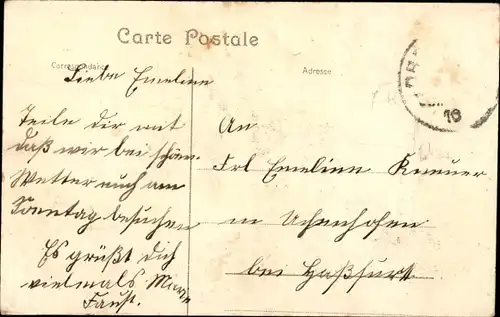 Carte Postale
Correspondance
Adresse
Liebe Emeline
Teile dir mit
daß wir bei schön.
Wetter euch am
Sonntag besuchen
Es grüßt dich
vielmals Marie
Faust.
An
Frl Emeline
in Uchenhofen
bei Haßfurt.
10